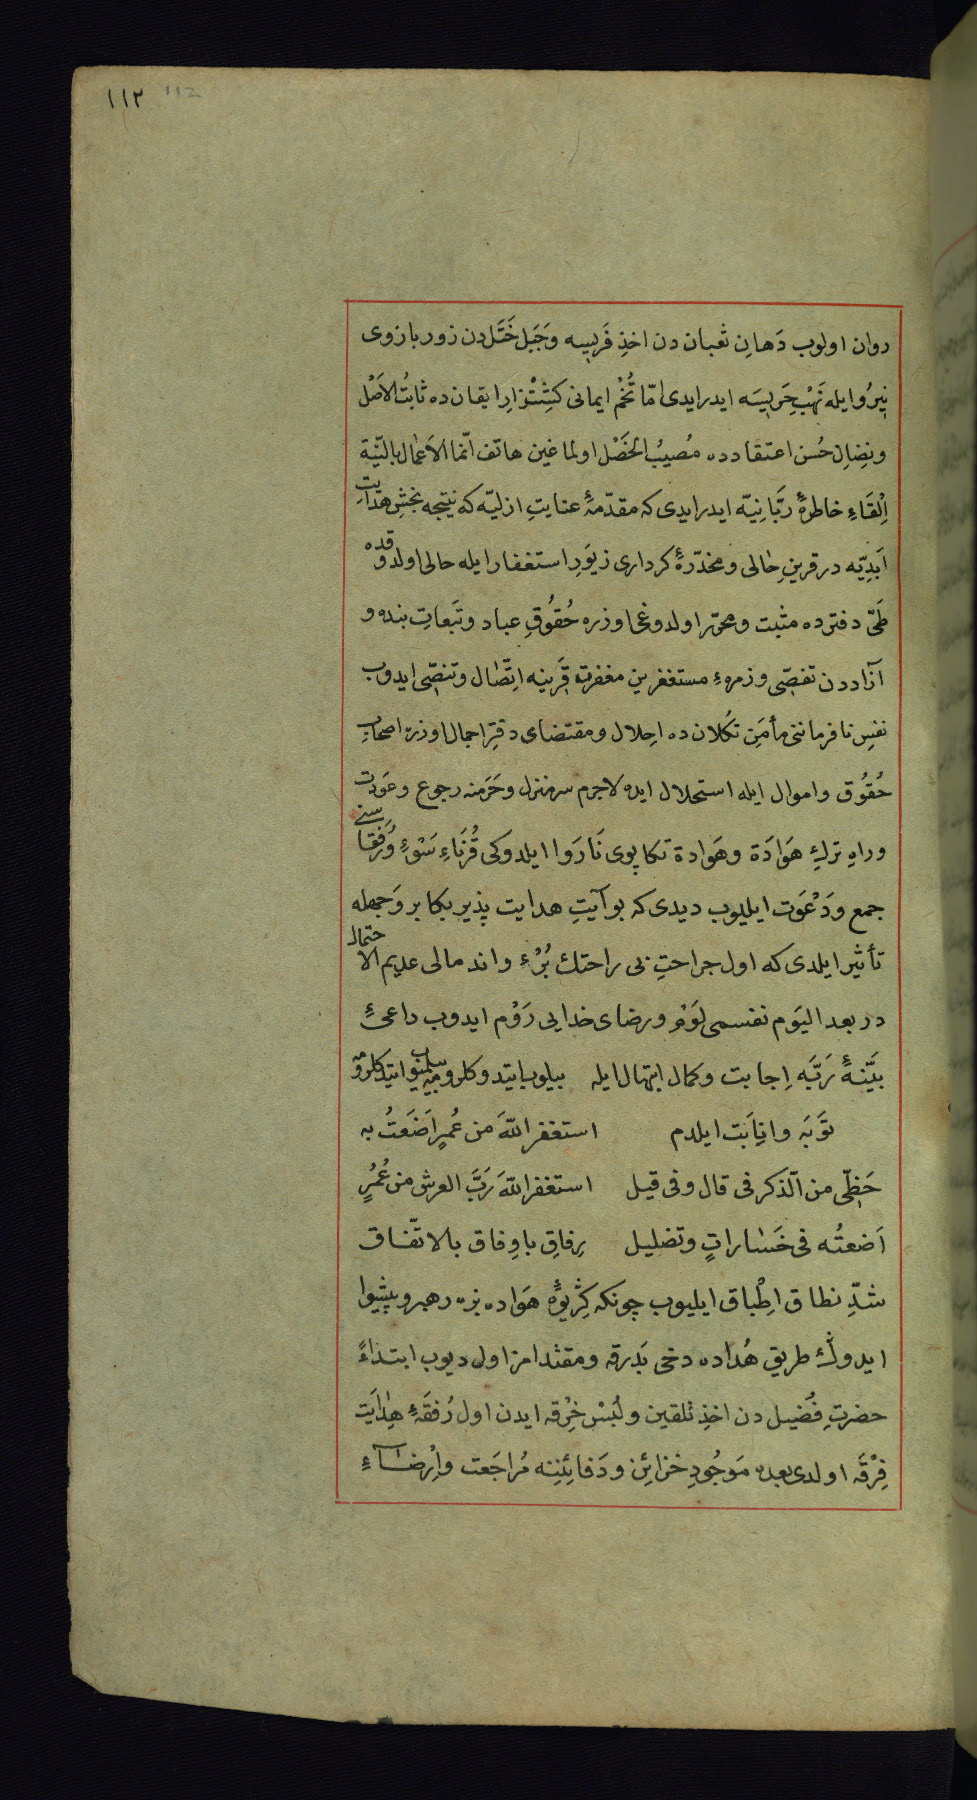 ١١٢ 112
روان اولوب دَهانِ ثعبان دن اخذِ فَریسه وجَبَل خَتَل دن زور بازوی
نِیرُو ایله نَهْبِ حَریسَه ایدر ایدی امّا تُخْم ایمانی کشِتْزارِ ایقان ده ثابتُ الاَصْل
ونِضالِ حُسن اعتقادده مُصیبُ الخَصْل اولماغین هاتف انّما الاَعمال بالنّیّة
اِلْقَاءِ خاطرهٔ رَبَّانیّه ایدر ایدی که مقدّمهٔ عنایتِ ازلیّه که نتیجه بخشِ هدایتِ
اَبَدِیّه در قرینِ حٰالی ومخدّرهٔ کرداری زیوَرِ استغفار ایله حالی اولدوقده
طَیّ دفترده مثبت ومحرّر اولدوغی اوزره حُقُوقِ عباد وتَبَعاتِ بنده و
آزاددن تفصّی وزمرهٔ مستغفرینِ مغفرت قَرینه اتِّصٰال وتنصّی ایدوب
نفسِ نافرماننی مأمَنِ تکلان ده احلال ومقتضای دفترِ اجمال اوزره اصحابِ
حُقُوق واموال ایله استحلال ایده لاجرم سرمنزل وحَرَمنه رجوع وعَودت
وراهِ ترلهِ هَوادَة وهَوادة تکاپوی نَارَوا ایلدوکی قُرَنَاءِ سَوْءِ ورُفَقَاسنی
جمع ودَعْوَت ایلیوب دیدی که بو آیتِ هدایت پذیر بکا بر وَجهله
تأثیر ایلدی که اول جراحتِ بی راحتك بُرْءِ واندمالی عدیم الاحتمال
در بعد الیَوم نفسمی لَوْم ورضای خدایی رَوْم ایدوب داعیٔ
بیّنهٔ رَبَّه اِجابت وکمال ابتهال ایله بیلوب ایتدوکلرومه بیلمیوب ایتدوکلرومه
تَوبَه وانِابَت ایلدم استغفر اللّٰهَ من عُمرٍ اَضَعتُ به
حَظِّی من الّذکر فی قال وفی قیل استغفر اللّٰهَ رَبَّ العرش من عُمُرٍ
اَضعتُه فی خَسٰاراتٍ وتضلیل رِفاقِ باوِفاق بالاتّفاق
شدِّ نطاق اِطْباق ایلیوب چونکه کژیوهٔ هَواده بزه رهبر وپیشوا
ایدوڭ طریقِ هُداده دخی بَدرقه ومقتدامز اول دیوب ابتداءً
حضرتِ فُضیل دن اخذِ تلقین ولُبْسِ خِرْقه ایدن اول رُفقَهٔ هِدٰایَت
فِرْقَه اولدی بعده مَوجُودِ خزائن ودَفائِننِه مُراجَعت واِرْضآءِ